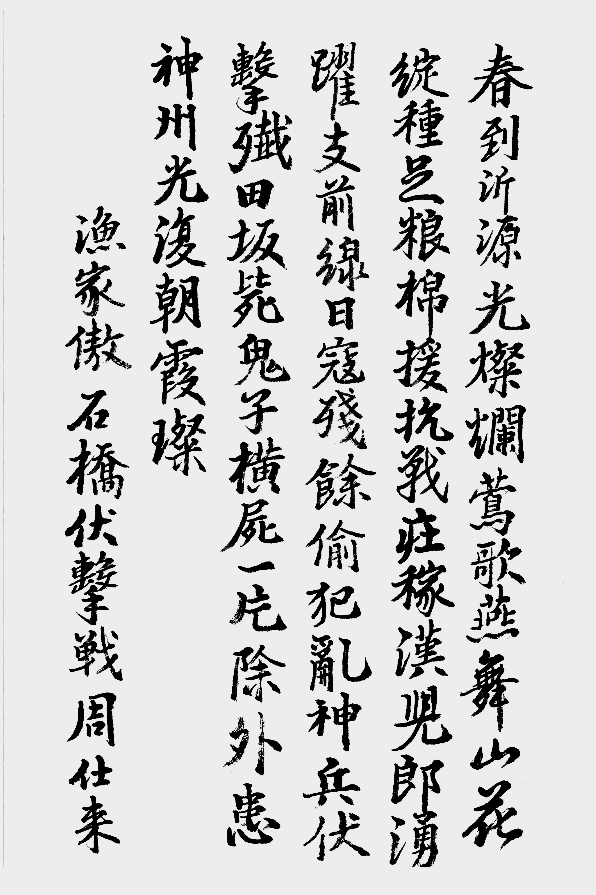 春到沂源光燦爛莺歌燕舞山花
綻種足粮棉援抗戰庄稼漢兒郎湧
躍支前線日寇殘餘偷犯亂神兵伏
擊殲田坂毙鬼子橫屍一片除外患
神州光復朝霞璨
漁家傲 石橋伏擊戰 周仕来